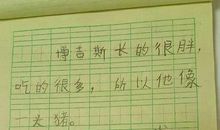 博吉斯长的很胖，
吃的很多，所以他像
一头猪。